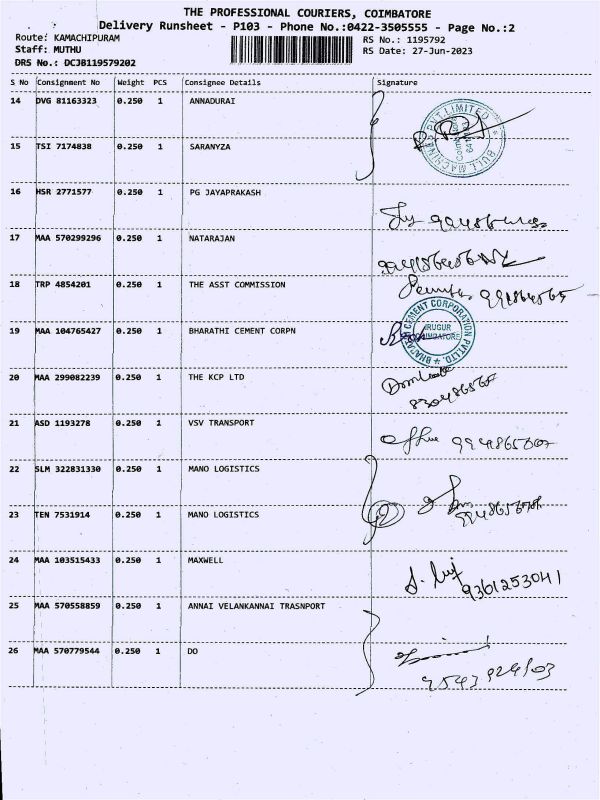 THE PROFESSIONAL COURIERS, COIMBATORE
Delivery Runsheet - P103 - Phone No.:0422-3505555 - Page No.:2
Route: KAMACHIPURAM RS No.: 1195792
Staff: MUTHU RS Date: 27-Jun-2023
DRS No.: DCJB119579202
S No Consignment No Weight PCS Consignee Details Signature
14 DVG 81163323 0.250 1 ANNADURAI
15 TSI 7174838 0.250 1 SARANYZA
BULL MACHINES PVT.LIMITED
16 HSR 2771577 0.250 1 PG JAYAPRAKASH
17 MAA 570299296 0.250 1 NATARAJAN
18 TRP 4854201 0.250 1 THE ASST COMMISSION
19 MAA 104765427 0.250 1 BHARATHI CEMENT CORPN
BHARATHI CEMENT CORPORATION PVT.LTD.
IRUGUR
COIMBATORE
20 MAA 299082239 0.250 1 THE KCP LTD
21 ASD 1193278 0.250 1 VSV TRANSPORT
22 SLM 322831330 0.250 1 MANO LOGISTICS
23 TEN 7531914 0.250 1 MANO LOGISTICS
24 MAA 103515433 0.250 1 MAXWELL
9361253041
25 MAA 570558859 0.250 1 ANNAI VELANKANNAI TRASNPORT
26 MAA 570779544 0.250 1 DO